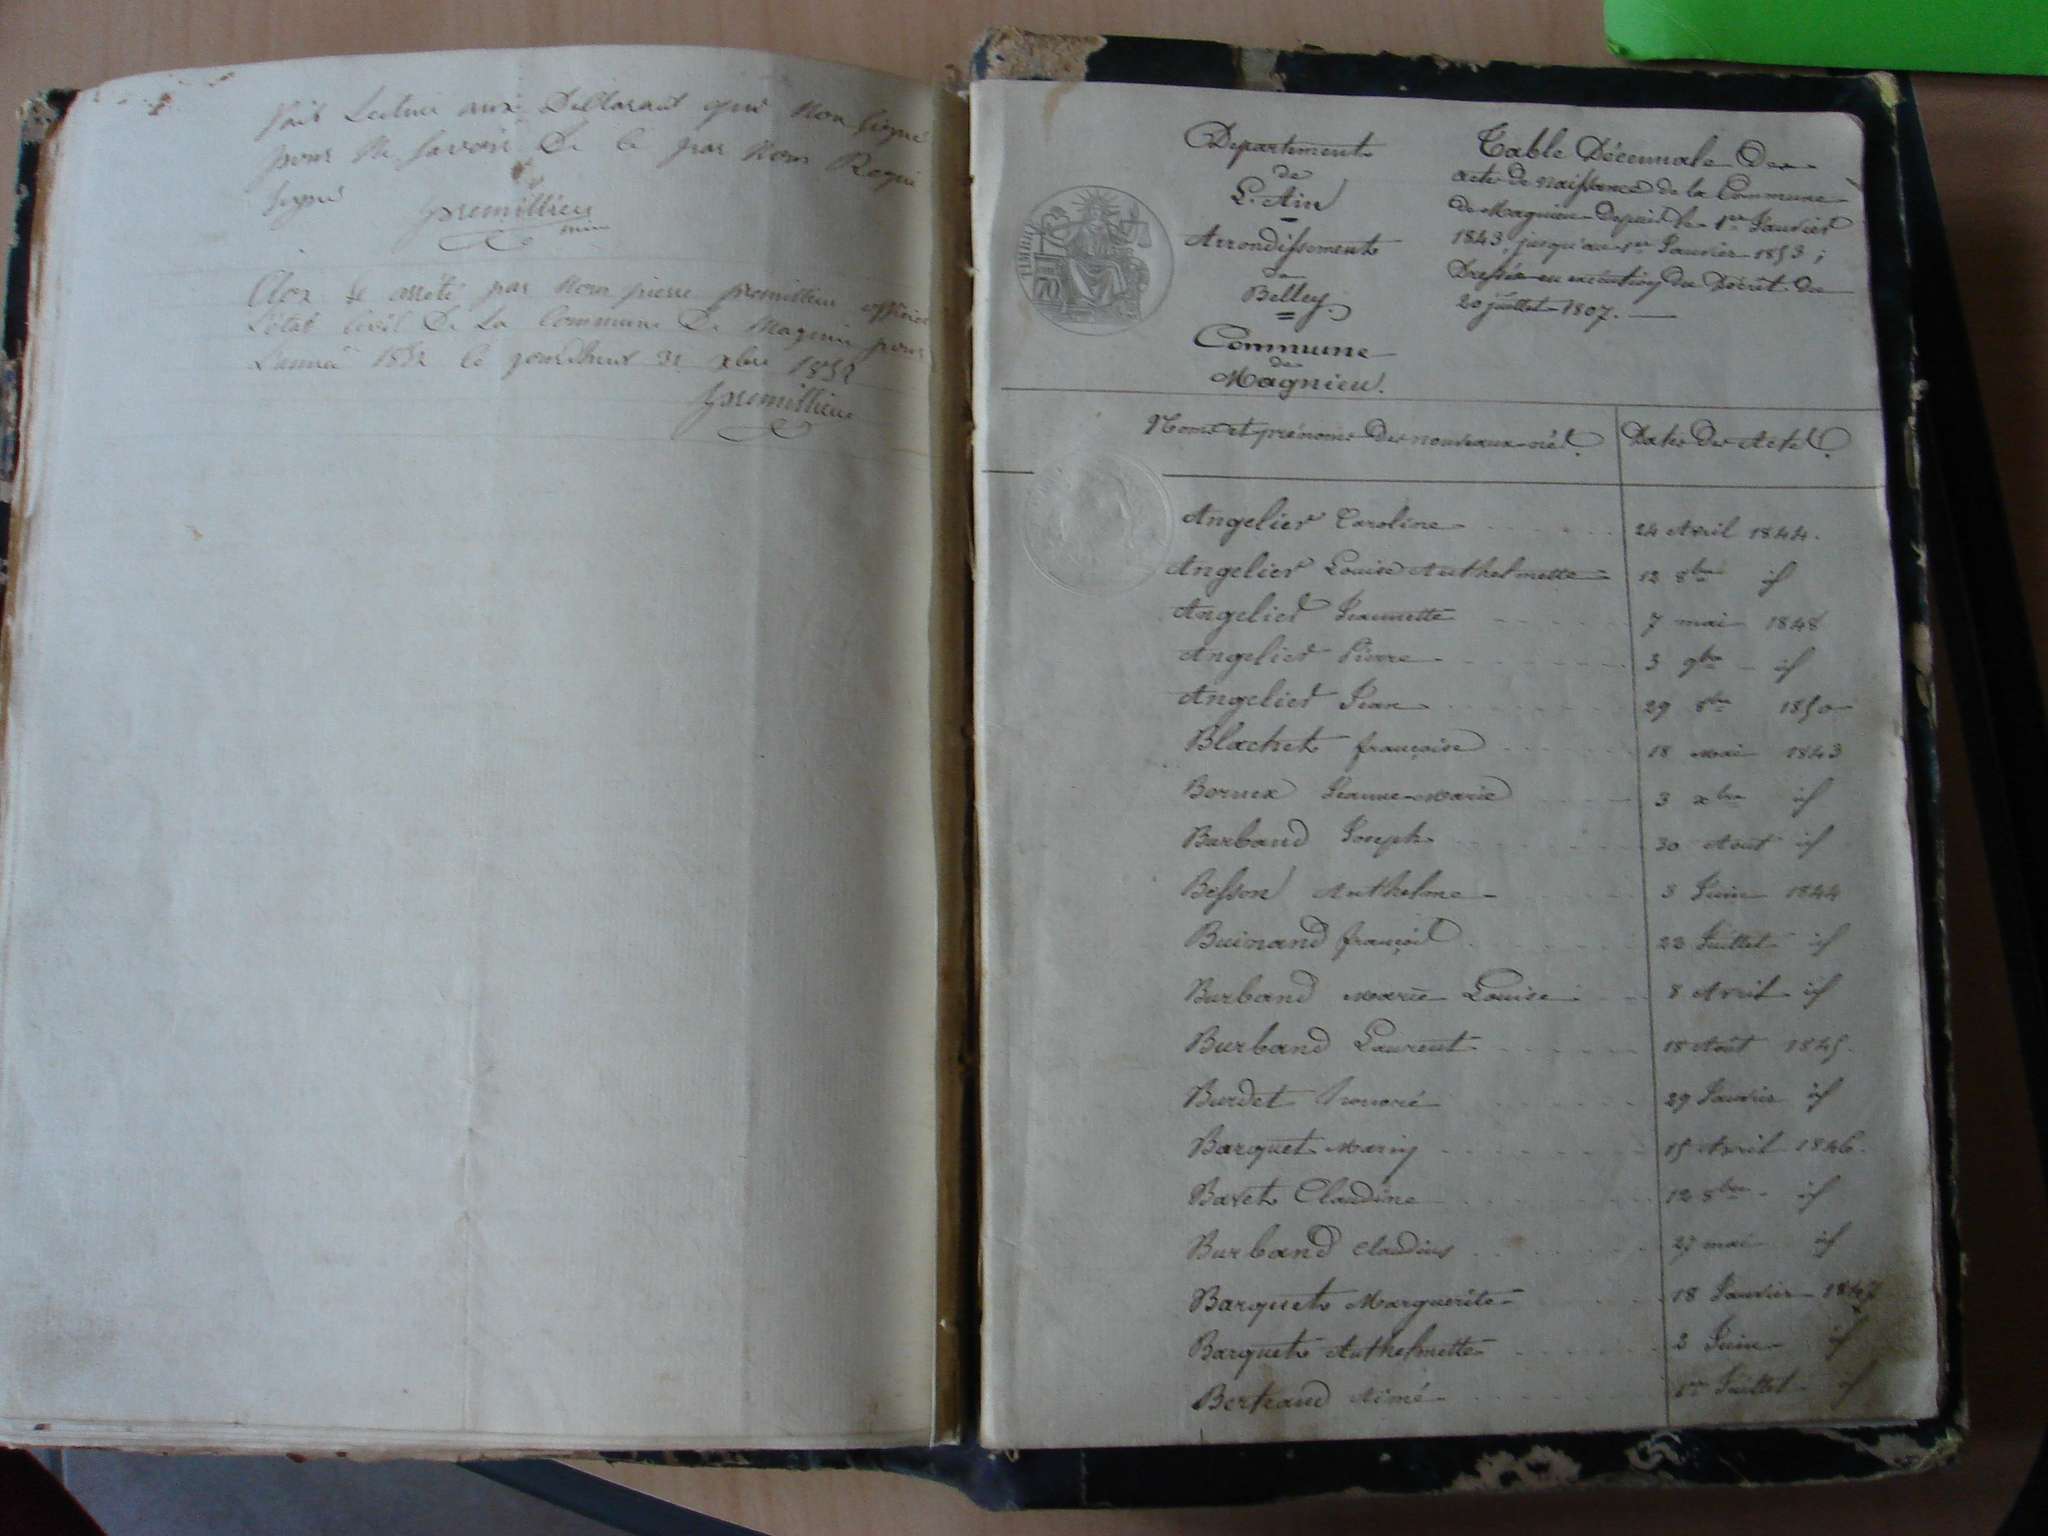 fait Lecture aux Déclarant qui Non Signé
pour Ne Savoir De ce par Nous Requi
Signé
premillieu
Clos et arrêté par Nous pierre premillieu officier
L'état Civil De La Commune De Magnieu pour
L'année 1852 le jourdhui 31 xbre 1852
premillieu
Département
de
L'Ain
Arrondissement
de
Belley
Commune
de
Magnieu.
Table Décennale Des
actes de naissance de la Commune
de Magnieu Depuis le 1er Janvier
1843 jusqu'au 1er Janvier 1853;
Dressée en exécution du Décret du
20 juillet 1807.
TIMBRE
70
Noms et prénoms des nouveaux-nés. Dates des Actes.
Angelier Caroline 24 Avril 1844.
Angelier Louise Anthelmette 12 8bre id
Angelier Jeannette 7 mai 1848
Angelier Pierre 3 9bre id
Angelier Jean 29 8bre 1850
Blachet françoise 18 mai 1843
Bornex Jeanne-Marie 3 xbre id
Burband Joseph 30 Août id
Besson Anthelme 8 Juin 1844
Buinand françois 22 Juillet id
Burband Marie Louise 8 Avril id
Burband Laurent 18 Août 1845.
Burdet honoré 29 Janvier id
Barquet Marin 15 Avril 1846.
Bavet Claudine 12 8bre id
Burband Claudius 27 mai id
Barquet Marguerite 18 Janvier 1847
Barquet Anthelmette 2 Juin id
Bertrand Aimé 1er Juillet id